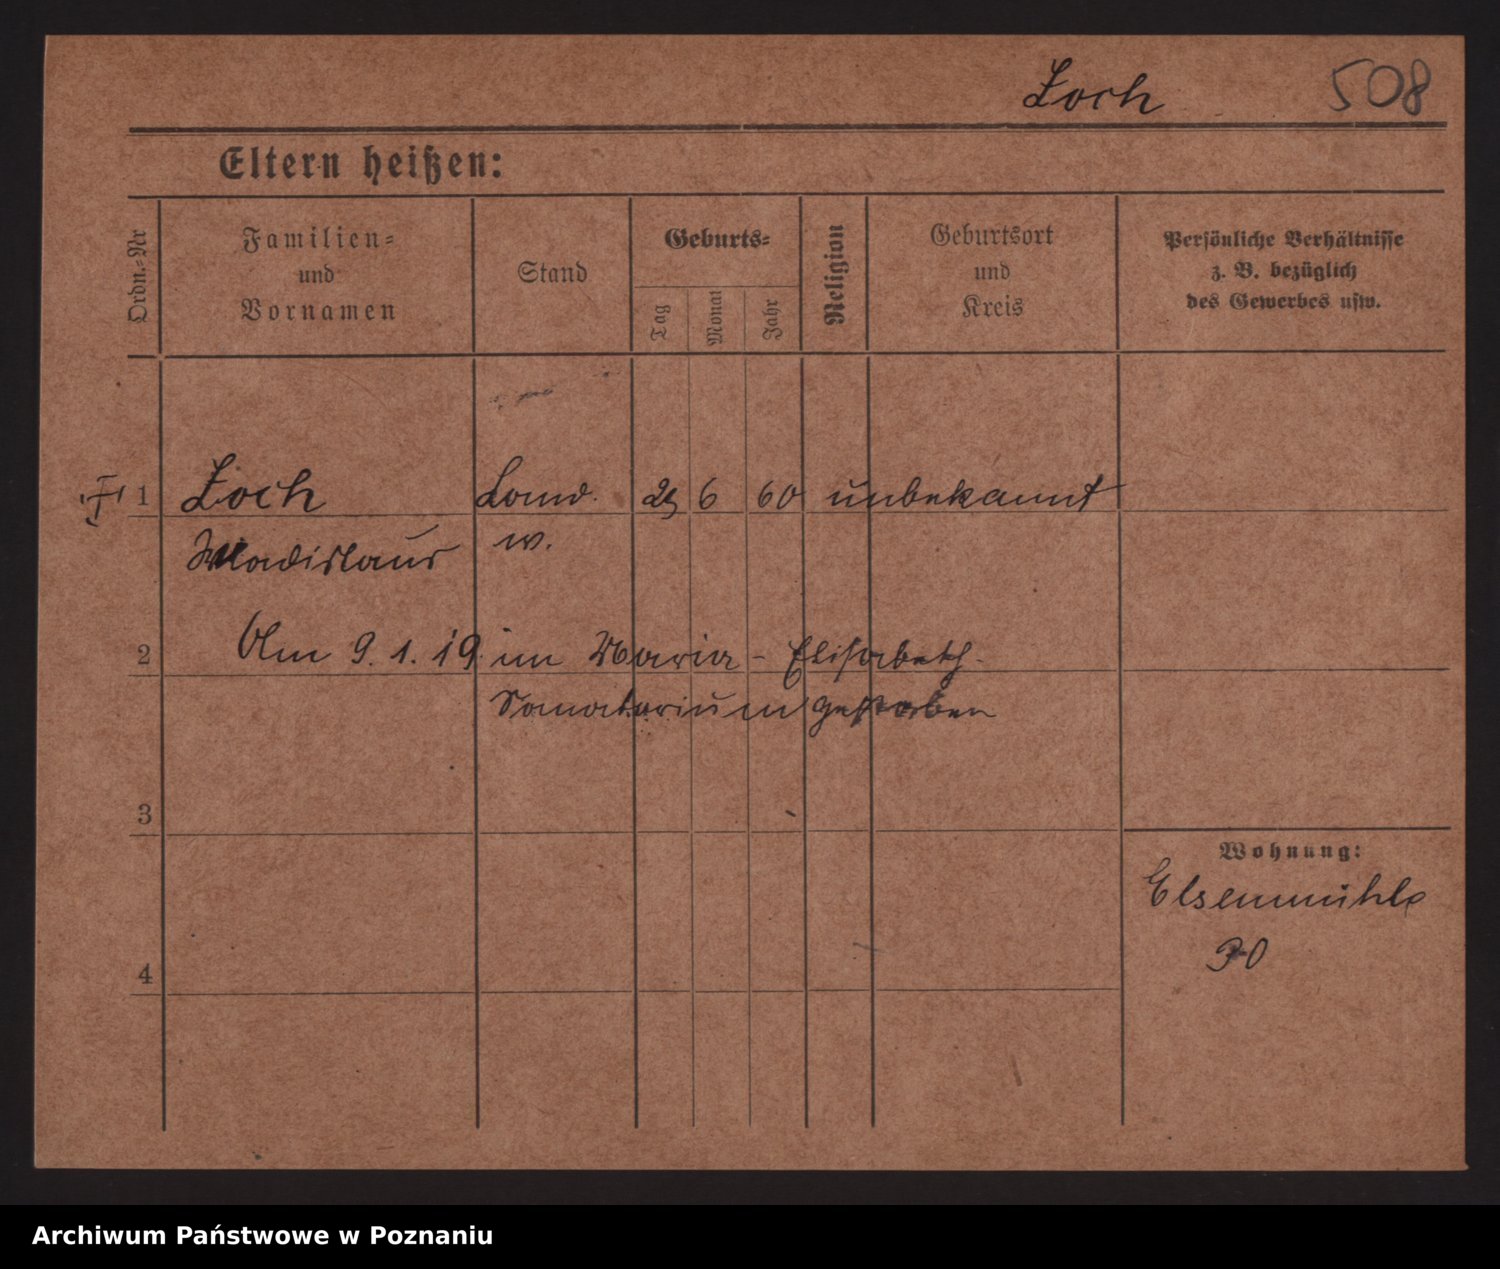 Loch 508
Eltern heißen:
Ordn.-Nr
Familien-
und
Vornamen
Stand
Geburts-
Tag
Monat
Jahr
Religion
Geburtsort
und
Kreis
Persönliche Verhältnisse
z. B. bezüglich
des Gewerbes usw.
1 Loch Landw. 25 6 60 unbekannt
Wladislaus w.
2 Am 9.1.19. im Maria-Elisabeth-
Sanatorium gestorben
3
Wohnung:
Elsenmühle
4
Archiwum Państwowe w Poznaniu